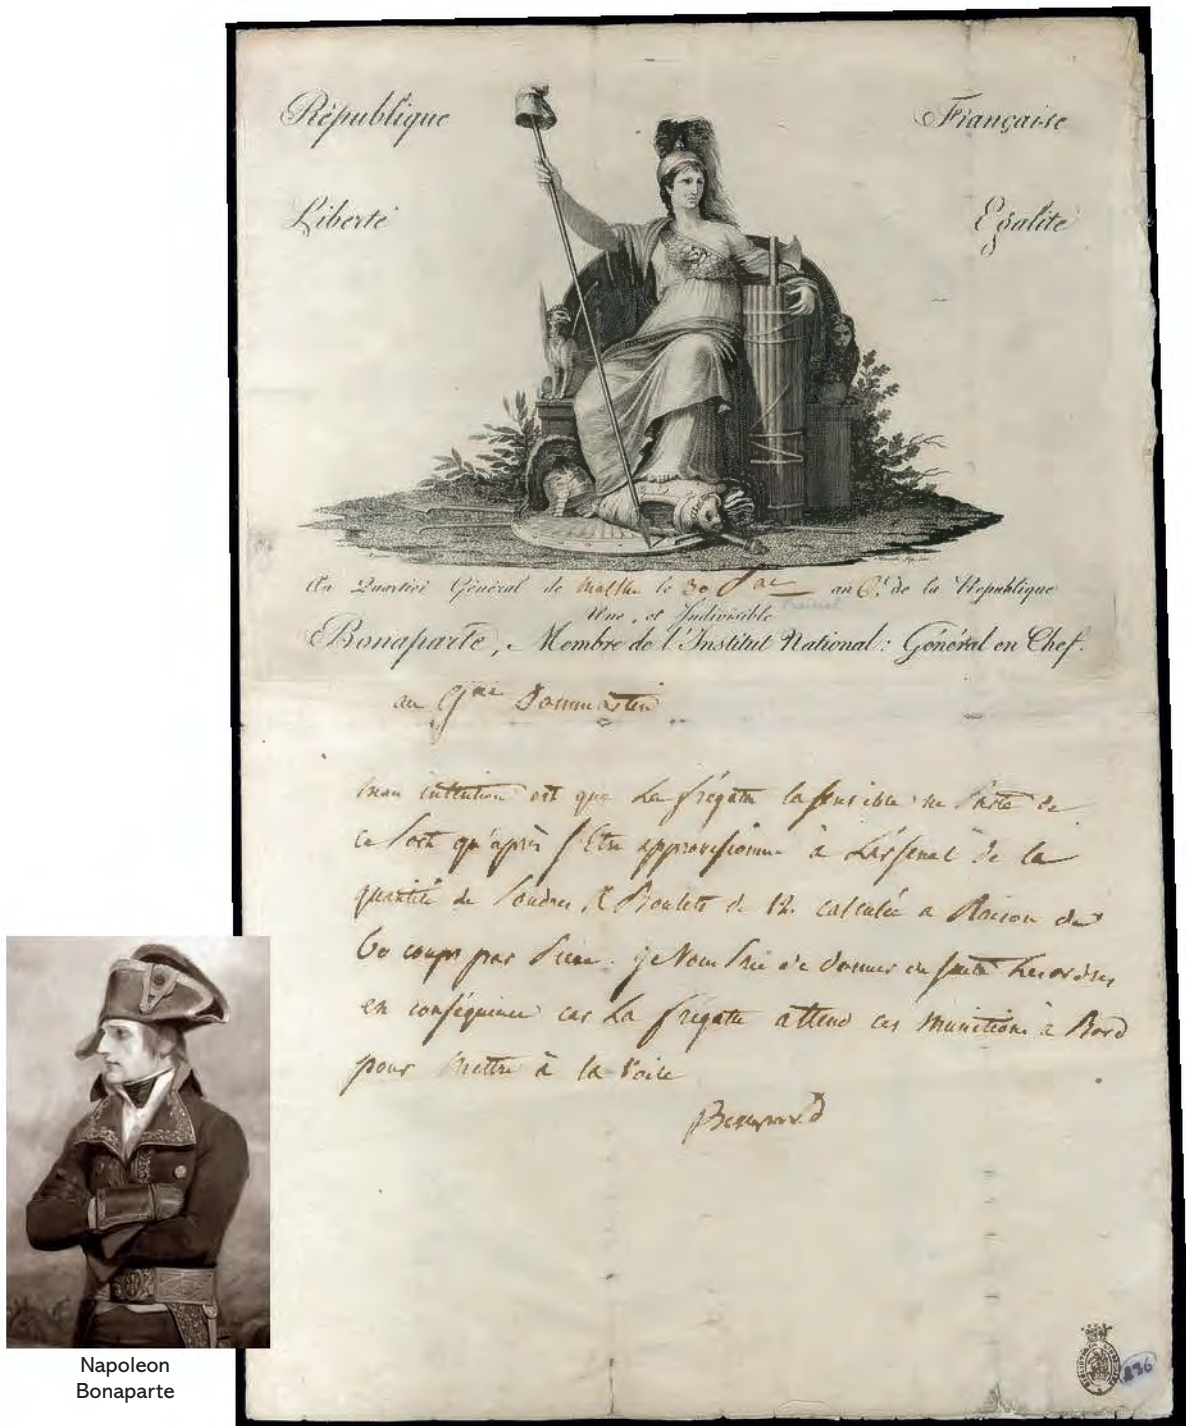 République Française
Liberté Egalité
Au Quartier Général de Malthe le 30 Pal an 6.e de la République
Une, et Indivisible
Bonaparte, Membre de l'Institut National: Général en Chef.
au Gnal Dommartin
mon intention est que La frégate la sensible ne Parte de
ce Port qu'après s'Etre approvisionné à L'arsenal de la
quantité de Poudres, & Boulets de 12. calculée a Raison de
60 coups par Pièce. je Vous Prie de donner de suite Les ordres
en conséquence car La frégate attend ces munitions à Bord
pour mettre à la Voile
Bonaparte
236
Napoleon
Bonaparte